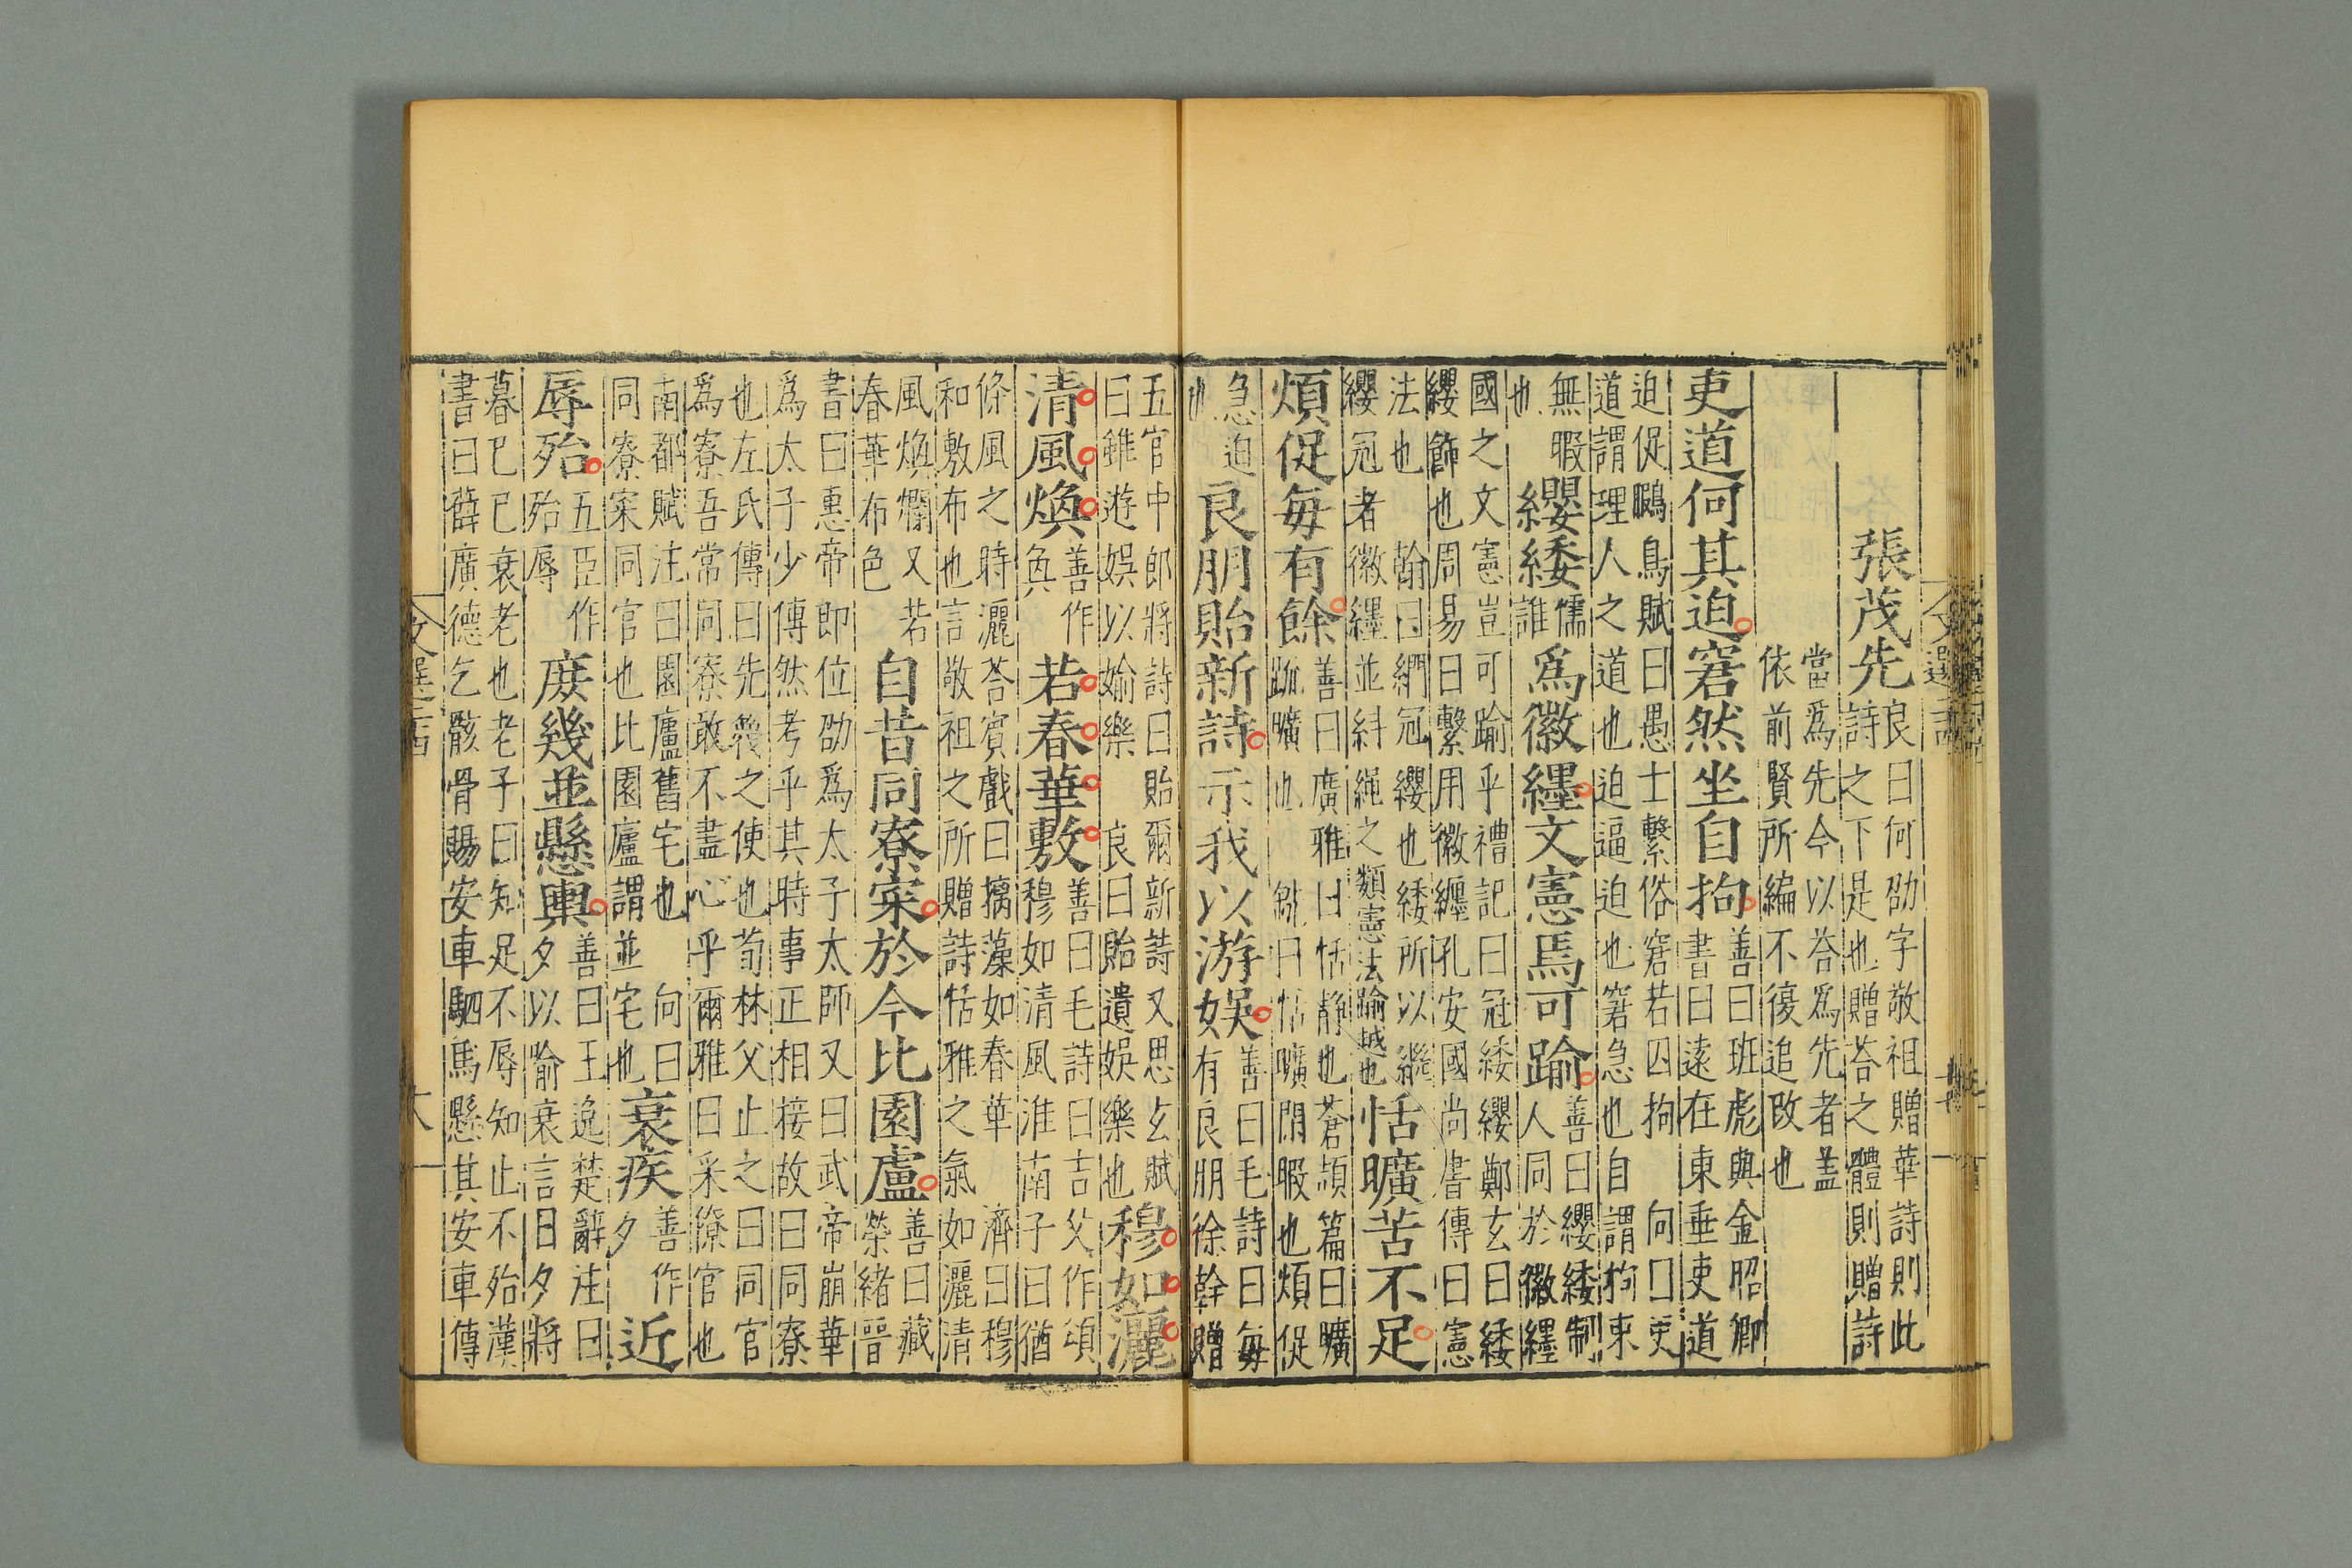 張茂先
良曰何劭字敬祖贈華詩則此
詩之下是也贈荅之體則贈詩
當爲先今以荅爲先者盖
依前賢所編不復追改也
吏道何其迫窘然坐自拘
善曰班彪與金昭卿
書曰遠在東垂吏道
迫促鵩鳥賦曰愚士繫俗窘若囚拘 向曰吏
道謂理人之道也迫逼迫也窘急也自謂拘束
無暇
也
纓緌
儒
誰
爲徽纆文憲焉可踰
善曰纓緌制
人同於徽纆
國之文憲豈可踰乎禮記曰冠緌纓鄭玄曰緌
纓飾也周易曰繫用徽纆孔安國尚書傳曰憲
法也 翰曰網冠纓也緌所以繼
纓冠者徽纆並糾繩之類憲法踰越也
恬曠苦不足
煩促毎有餘
善曰廣雅曰恬静也蒼頡篇曰曠
踈曠也 銑曰恬曠閑暇也煩促
急迫
也
良朋貽新詩示我以游娱
善曰毛詩曰毎
有良朋徐幹贈
五官中郎將詩曰貽爾新詩又思玄賦
曰雖遊娱以婾樂 良曰貽遺娱樂也
穆如灑
清風煥
善作
奐
若春華敷
善曰毛詩曰吉父作頌
穆如清風淮南子曰猶
條風之時灑荅賓戲曰摛藻如春華 濟曰穆
和敷布也言敬祖之所贈詩恬雅之氣如灑清
風煥爛又若
春華布色
自昔同寮寀於今比園廬
善曰臧
榮緒晉
書曰惠帝即位劭爲太子太師又曰武帝崩華
爲太子少傅然考乎其時事正相接故曰同寮
也左氏傳曰先蔑之使也荀林父止之曰同官
爲寮吾常同寮敢不盡心乎爾雅曰采僚官也
南都賦注曰園廬舊宅也 向曰
同寮寀同官也比園廬謂並宅也
衰疾
善作
夕
近
辱殆
五臣作
殆辱
庻幾並懸輿
善曰王逸楚辭注曰
夕以喻衰言日夕將
暮已已衰老也老子曰知足不辱知止不殆漢
書曰薛廣德乞骸骨賜安車駟馬懸其安車傳
文選
六